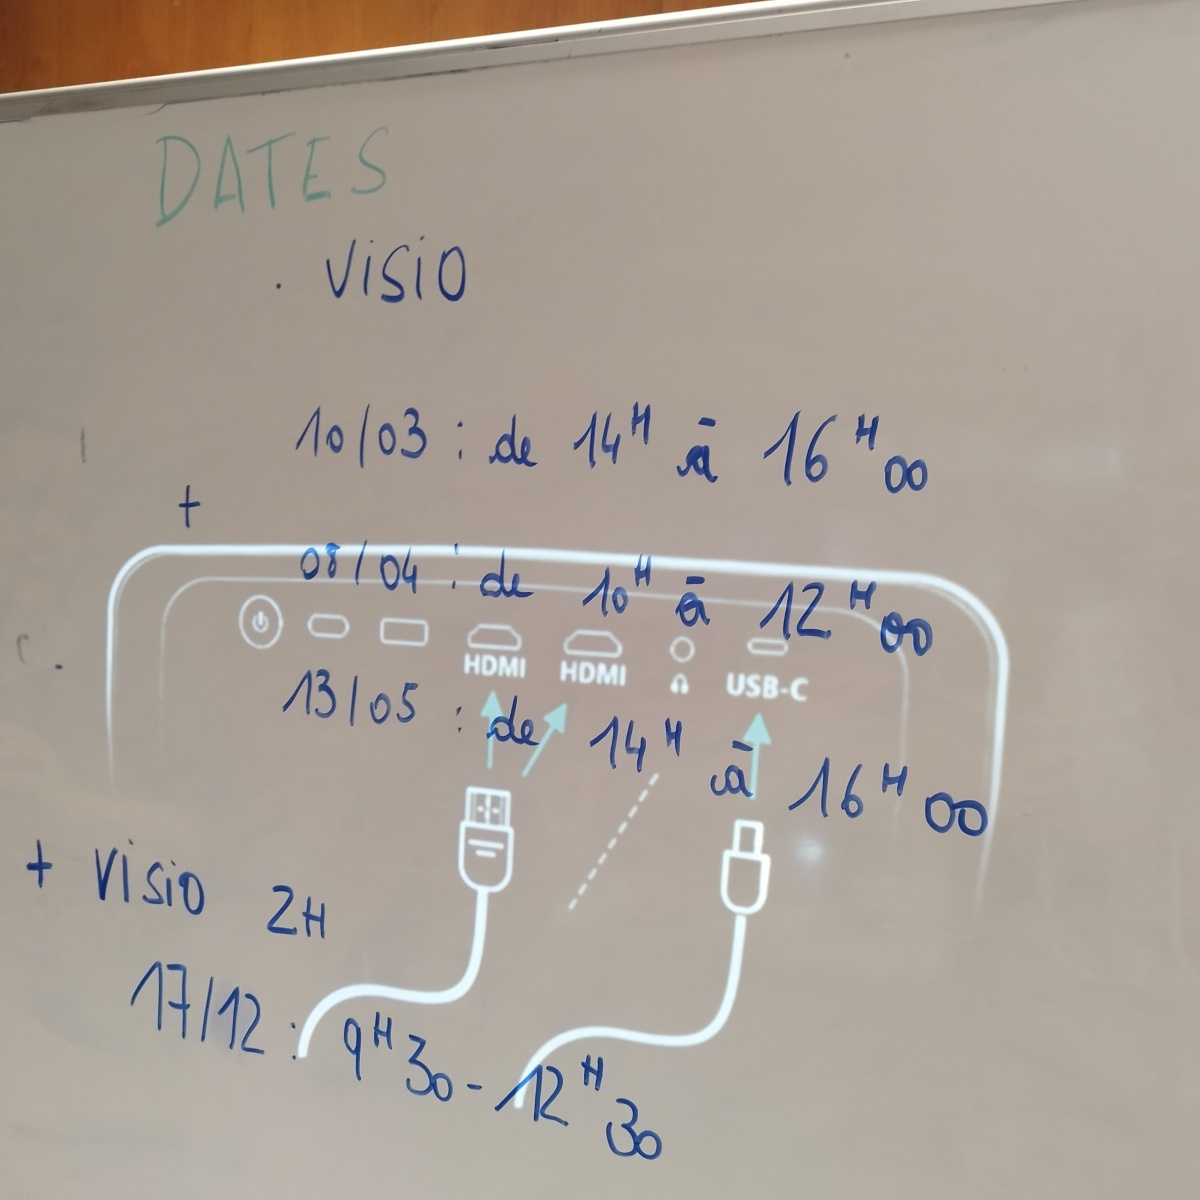 DATES
. VISIO
10/03 : de 14H à 16H00
+
08/04 : de 10H à 12H00
HDMI HDMI USB-C
13/05 : de 14H à 16H00
+ VISIO 2H
17/12 : 9H30 - 12H30